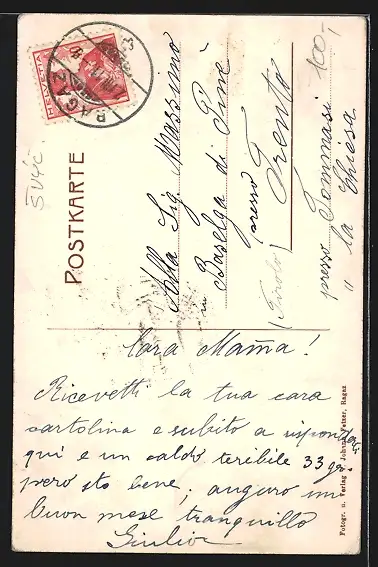 HELVETIA
RAGAZ
100-
ŠVÝC.
POSTKARTE
Alla Sig. Massimo
in Baselga di Pinè
presso Trento
(Tirolo)
presso Tommasi
"la Chiesa
Cara Mama!
Ricevetti la tua cara
cartolina e subito a rispondo
qui e un caldo teribile 33 gr.
pero sto bene; auguro un
buon mese tranquillo
Giulior
Fotogr. u. Verlag v. Johann Fetzer, Ragaz